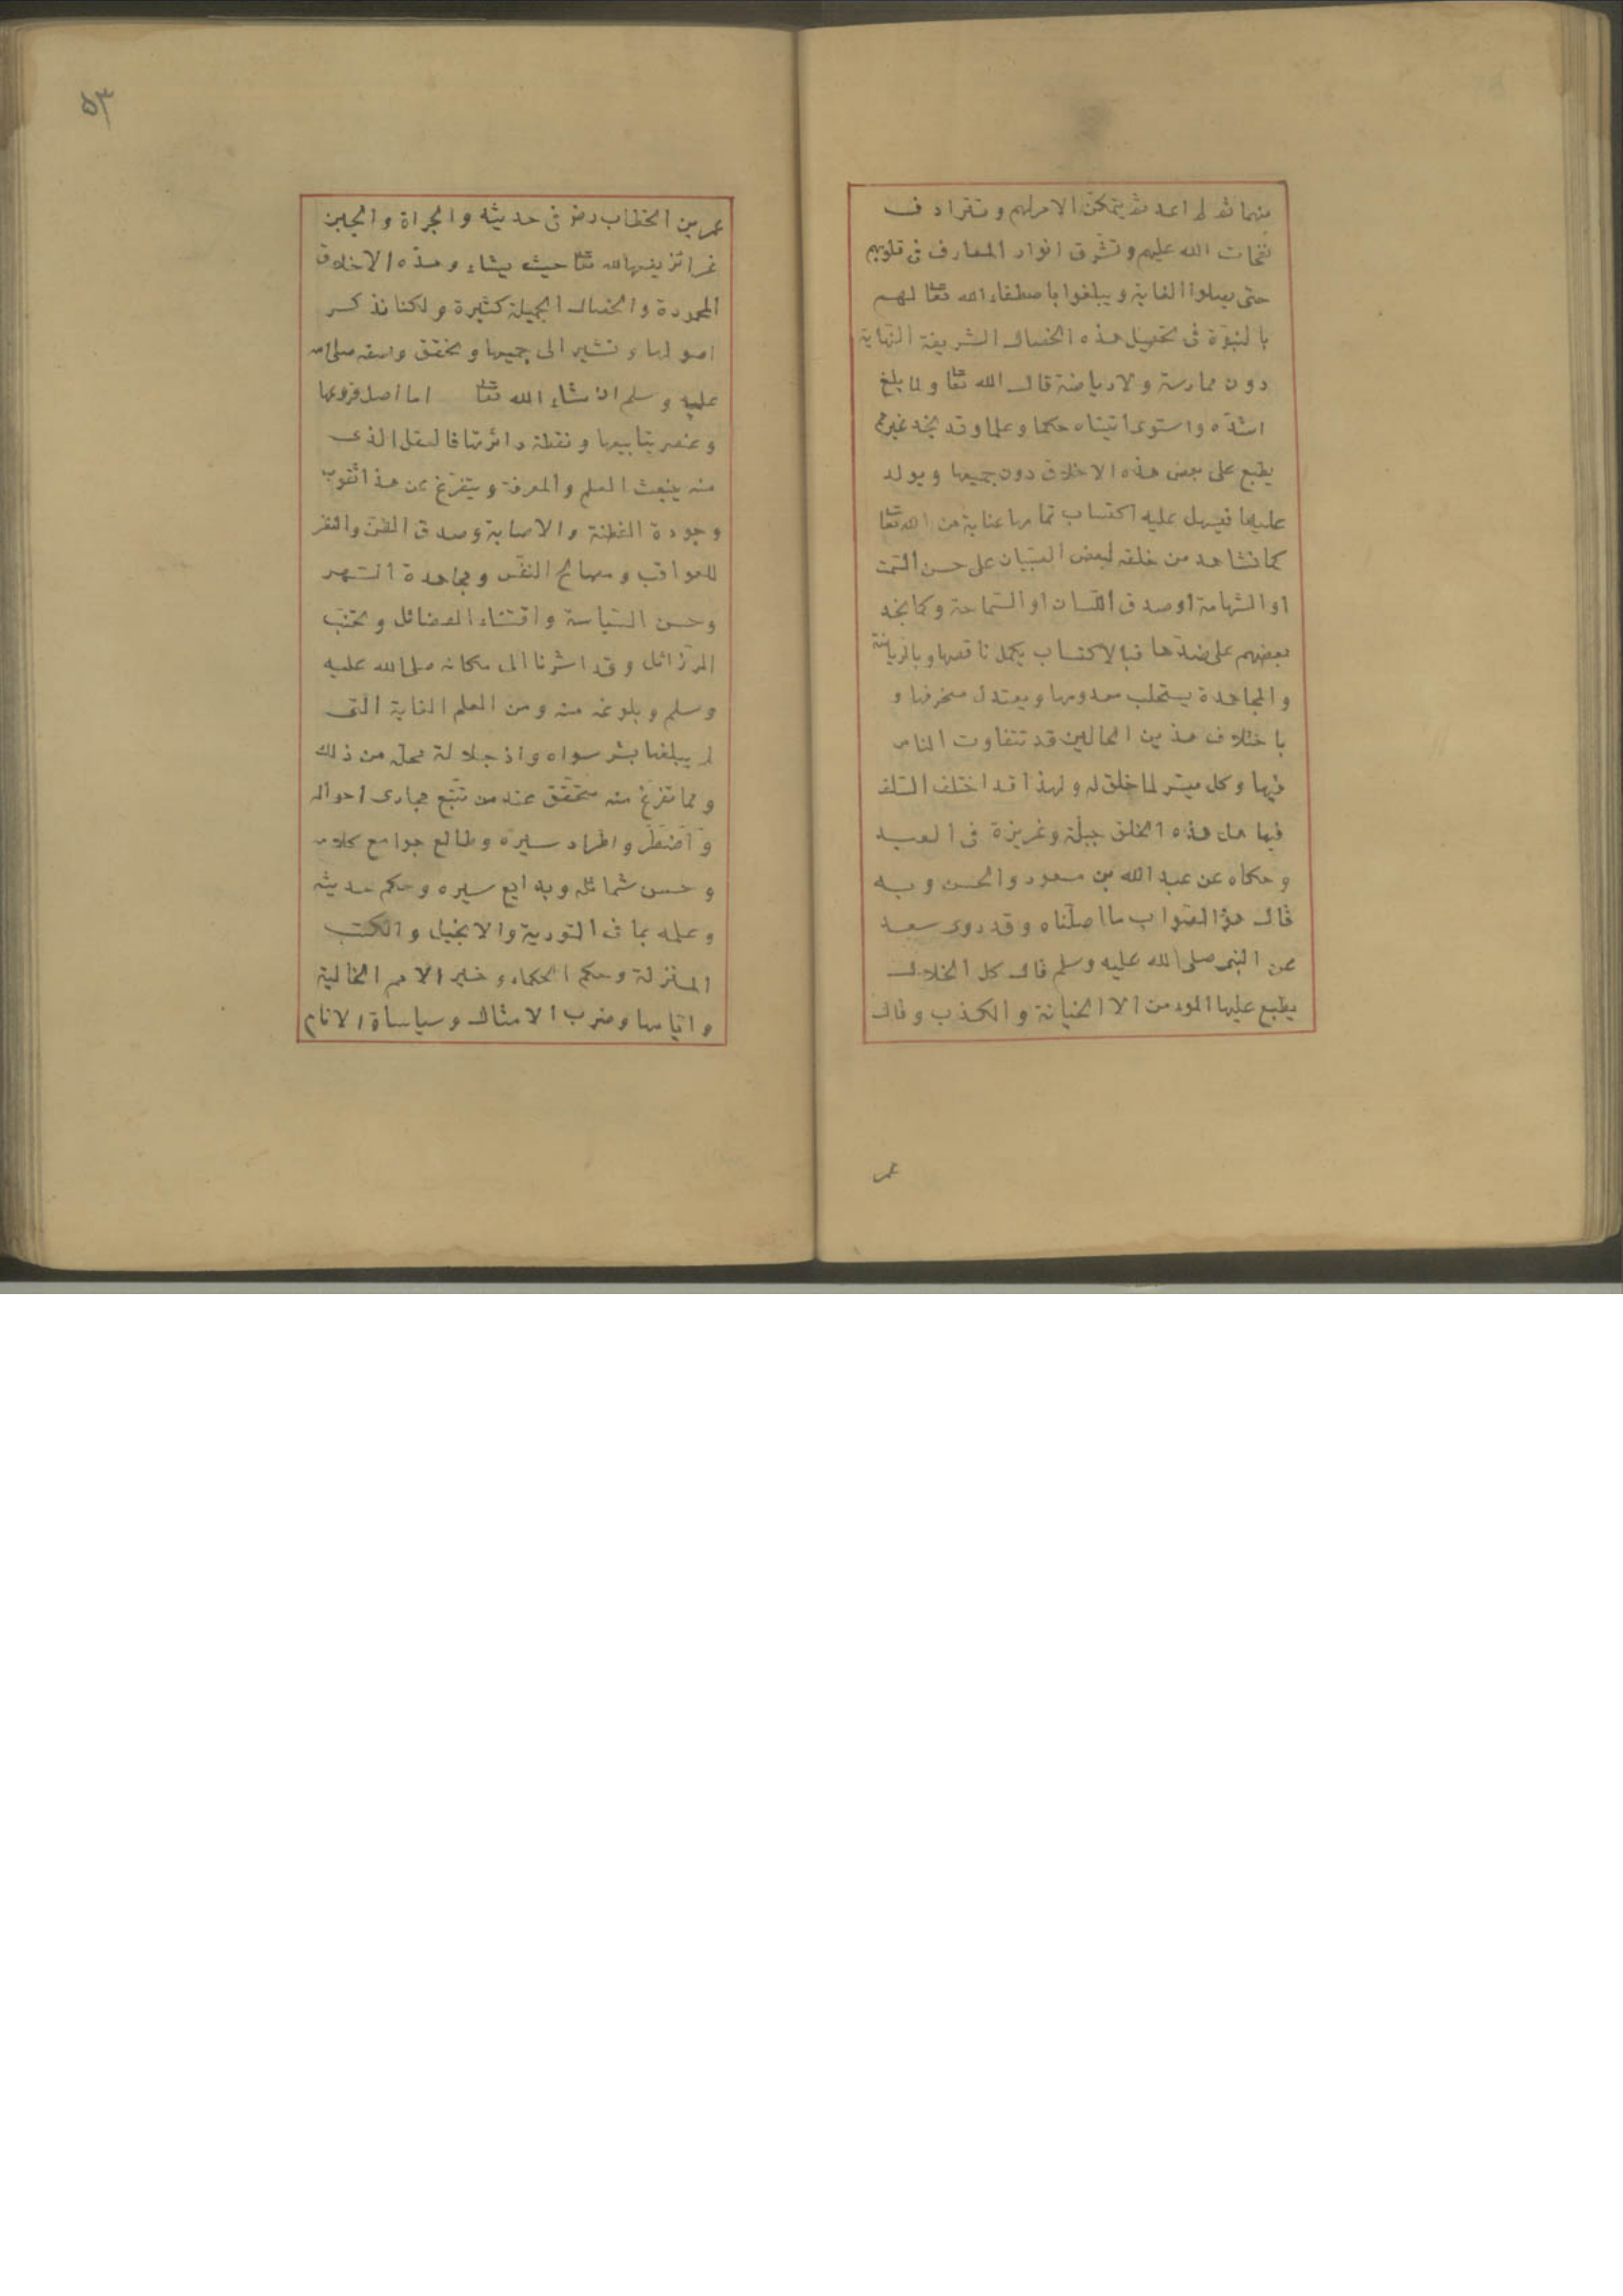 منهما ثم لم اعد ثم يتمكن الامر لهم وتترادف
نفحات الله عليهم وتشرق انوار المعارف فى قلوبهم
حتى يصلوا الغاية ويبلغوا باصطفاء الله تعا لهم
بالنبوّة فى تحصيل هذه الخصال الشريفة النهاية
دون ممارسة ولا رياضة قال الله تعا ولما بلغ
اشدّه واستوى اتيناه حكما وعلما وقد نجد غيرهم
يطبع على بعض هذه الاخلاق دون جميعها ويولد
عليها فيسهل عليه اكتساب تمامها عناية من الله تعا
كما نشاهد من خلقه لبعض الصبيان على حسن السّمت
او الشهامة او صدق اللّسان او السّماحة وكما نجد
بعضهم على ضدّها فبالاكتساب يكمل ناقصها وبالرياضة
والمجاهدة يستجلب معدومها ويعتدل منحرفها و
باختلاف هذين الحالين قد تتفاوت الناس
فيها وكل ميسّر لما خلق له ولهذا قد اختلف السّلف
فيها هل هذه الخلق جبلّة وغريزة فى العبد
وحكاه عن عبد الله بن مسعود والحسن وبه
قال هو الصّواب ما اصلّناه وقد روى سعد
عن النبى صلى الله عليه وسلم قال كل الخلال
يطبع عليها المؤمن الا الخيانة والكذب وقال
عمر
٥٣
عمر بن الخطاب رضو فى حديثه والجراة والجبن
غرائز يضعها الله تعا حيث يشاء وهذه الاخلاق
المحمودة والخصال الجميلة كثيرة ولكنا نذكر
اصولها ونشير الى جميعها ونحقق وصفه صلى الله
عليه وسلم ان شاء الله تعا اما اصل فروعها
وعنصر ينابيعها ونقطة دائرتها فالعقل الذى
منه ينبعث العلم والمعرفة ويتفرّع عن هذا ثقوب
وجودة الفطنة والاصابة وصدق الظنّ والنظر
للعواقب ومصالح النفس ومجاهدة الشهر
وحسن السّياسة واقتناء الفضائل وتجنّب
الرّذائل وقد اشرنا الى مكانه صلى الله عليه
وسلم وبلوغه منه ومن العلم الغاية التى
لم يبلغها بشر سواه واذ جلالة محلّه من ذلك
ومما تفرّع منه متحقّق عند من تتبّع مجارى احواله
واطراد سيره وطالع جوامع كلامه
وحسن شمائله وبدايع سيره وحكم حديثه
وعلمه بما فى التورية والانجيل والكتب
المنزلة وحكم الحكماء وخبر الامم الخالية
وايّامها وضرب الامثال وسياساة الانام